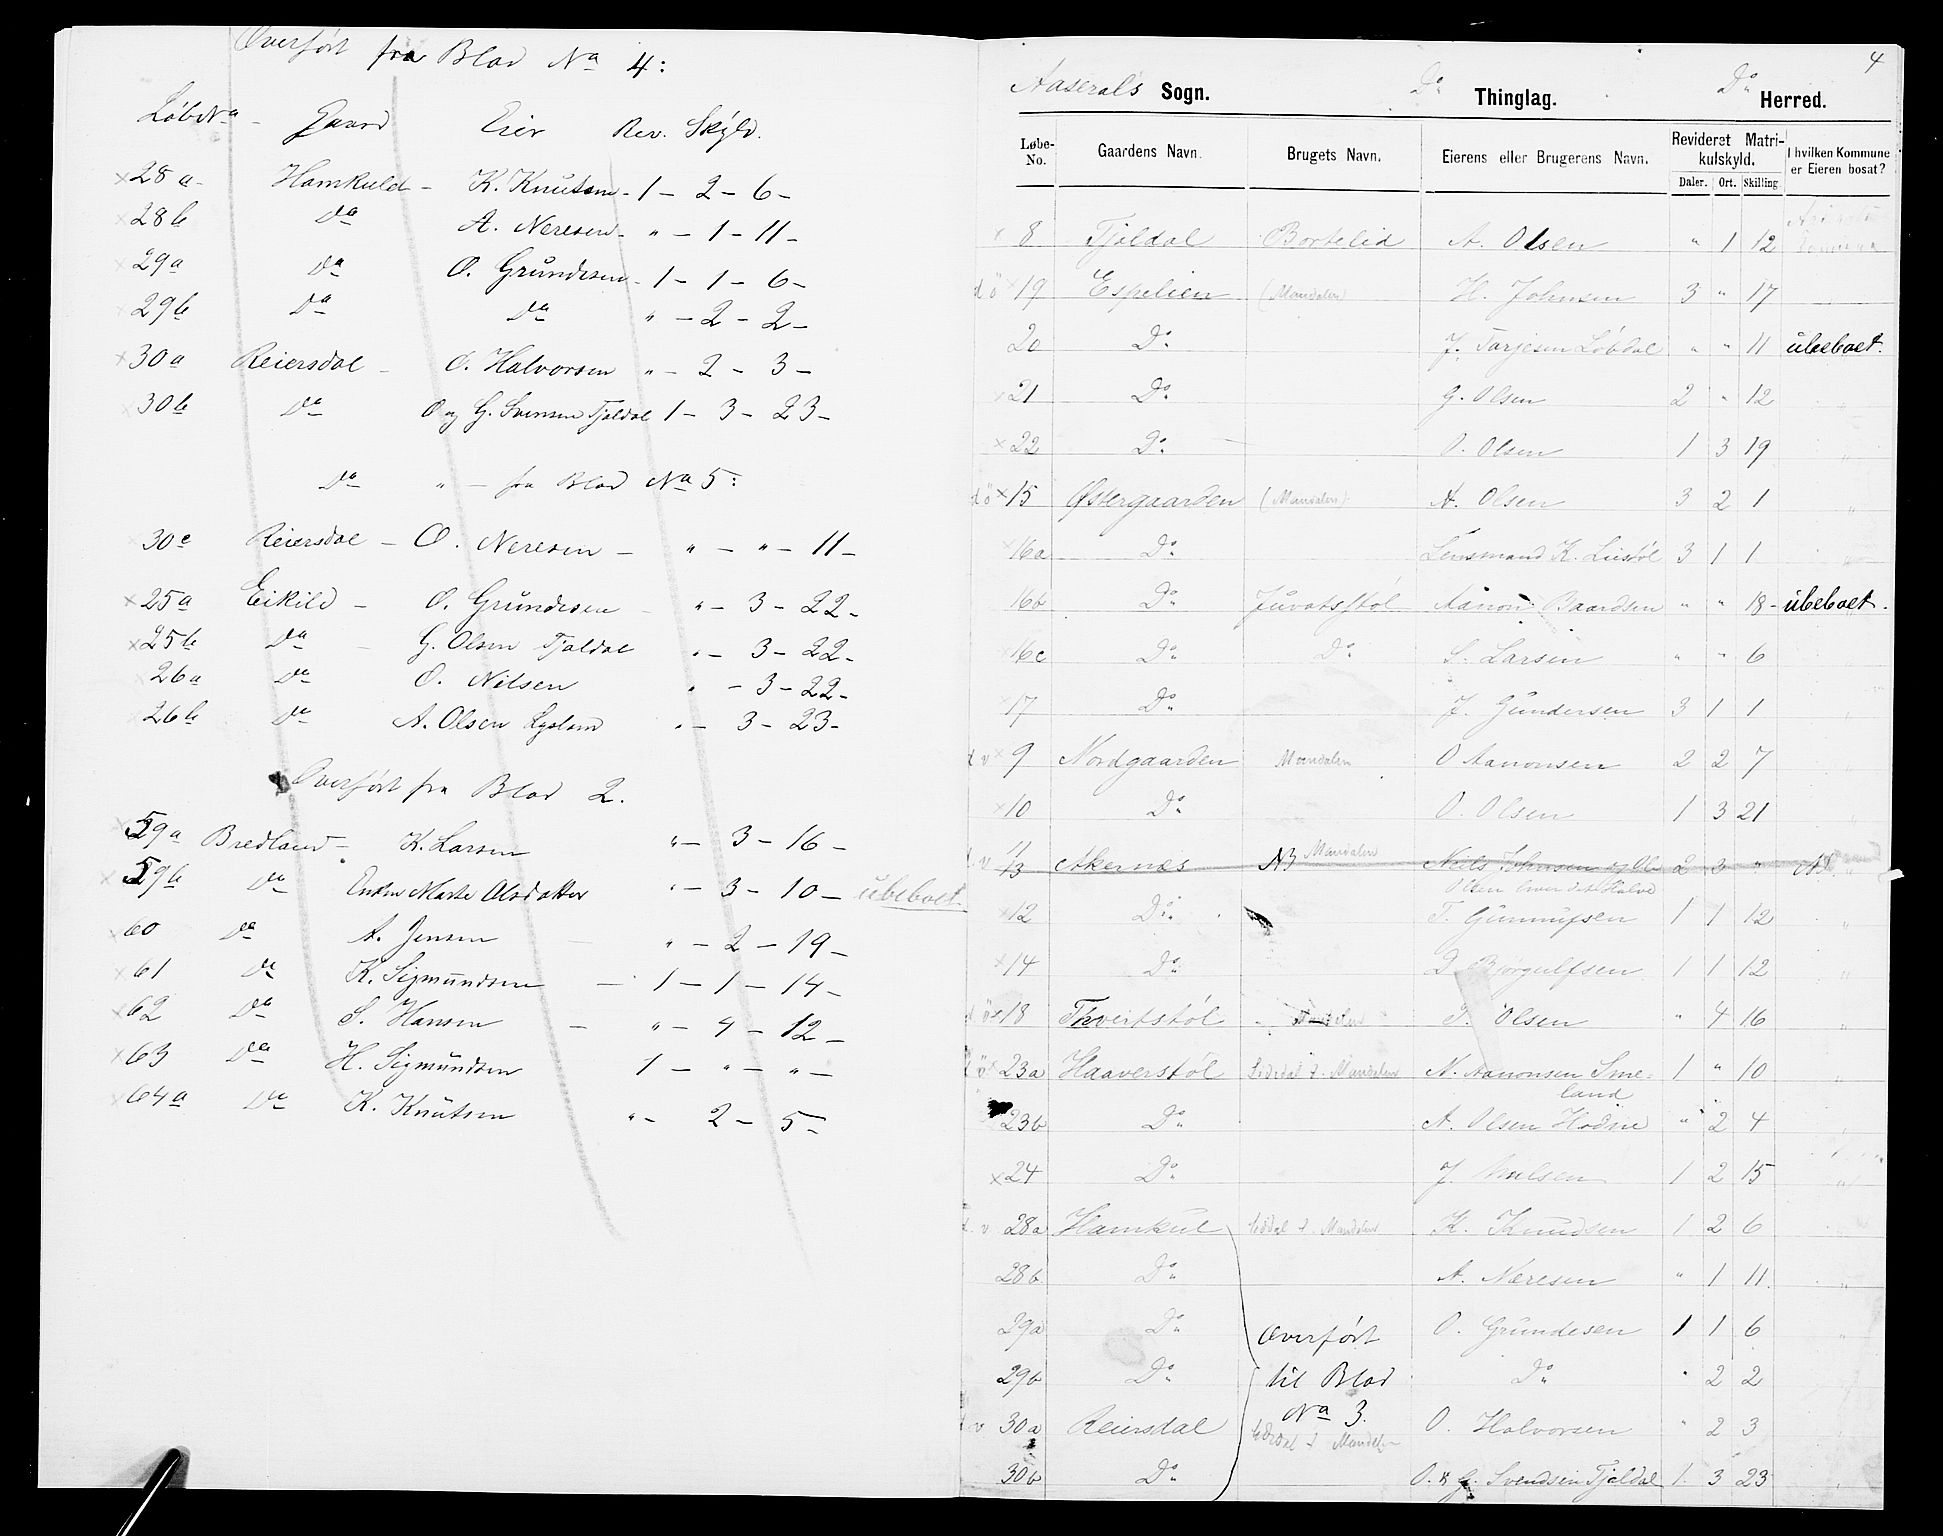 Overført fra Blad No 4:
Løbe No - Gaard Eier Rev. Skyld.
×28a - Homkuld - K. Knutsen - 1 - 2 - 6 -
×28b Do A. Neresen - " - 1 - 11 -
×29a Do O. Grundesen - 1 - 1 - 6 -
×29b Do Do " - 2 - 2 -
×30a Reiersdal - O. Halvorsen " - 2 - 3 -
×30b Do O og G. Svensen Tjaldal 1 - 3 - 23 -
Do " - fra Blad No 5:
30c Reiersdal - O. Neresen - " - " - 11 -
×25a Eikild - O. Grundesen - " - 3 - 22 -
×25b Do - G. Olsen Tjaldal " - 3 - 22 -
26a Do O. Nilsen " - 3 - 22 -
26b Do A. Olsen " - 3 - 23 -
Overført fra Blad 2.
59a Bredland - K. Larsen " - 3 - 16 -
×59b Do Enken Marte Olsdatter " - 3 - 10 - ubeboet.
×60 Do A. Jensen - " - 2 - 19 -
×61 Do K. Sigmundsen - 1 - 1 - 14 -
×62 Do S. Hansen - " - 4 - 12 -
×63 Do H. Sigmundsen 1 - " - " -
×64a Do K. Knutsen " - 2 - 5 -
4
Aaserals Sogn. Do Thinglag. Do Herred.
Løbe-No. Gaardens Navn. Brugets Navn. Eierens eller Brugerens Navn. Revideret Matrikulskyld. I hvilken Kommune er Eieren bosat?
Daler. Ort. Skilling
× 8 Tjaldal Bortelid A. Olsen " 1 12
d ö × 19 Espelien (Mandalen) H. Johnsen 3 " 17
20 Do J. Tarjesen Løbdal " " 11 ubeboet.
×21 Do G. Olsen 2 " 12 "
×22 Do O. Olsen 1 3 19 "
d ö ×15 Østergaarden (Mandalen) A. Olsen 3 2 1 "
×16a Do Lensmand K. Liestøl 3 1 1 "
16b Do Juvatsstøl Aanon Baardsen " " 18 - ubeboet.
×16c Do Do S. Larsen " " 6 "
×17 Do J. Gundersen 3 1 1 "
d v × 9 Nordgaarden Mandalen O Aanonsen 2 2 7 "
×10 Do O. Olsen 1 3 21 "
d. v 11/13 Akernæs Mandalen Niels Johnsen og Ole 2 3 "
Olsen hver det Halve
×12 Do T. Gunnufsen 1 1 12 "
×14 Do D. Bjørgulfsen 1 1 12 "
d ö ×18 Thveitstøl Mandalen J. Olsen " 4 16 "
d ö ×23a Haaverstøl Lødal i Mandalen N. Aanonsen Sme- 1 " 10 "
land
23b Do A. Olsen Hodne " 2 4
×24 Do J. Nilsen 1 2 15 "
d. v 28a Hamkul i Mandalen K. Knudsen 1 2 6 "
28b Do A. Næresen " 1 11 "
29a Do Overført O. Grundesen 1 1 6 "
29b Do til Blad Do " 2 2
No 3.
d v 30a Reiersdal i Mandalen O. Halvorsen " 2 3
30b Do O. & G. Svendsen Tjaldal 1 3 23